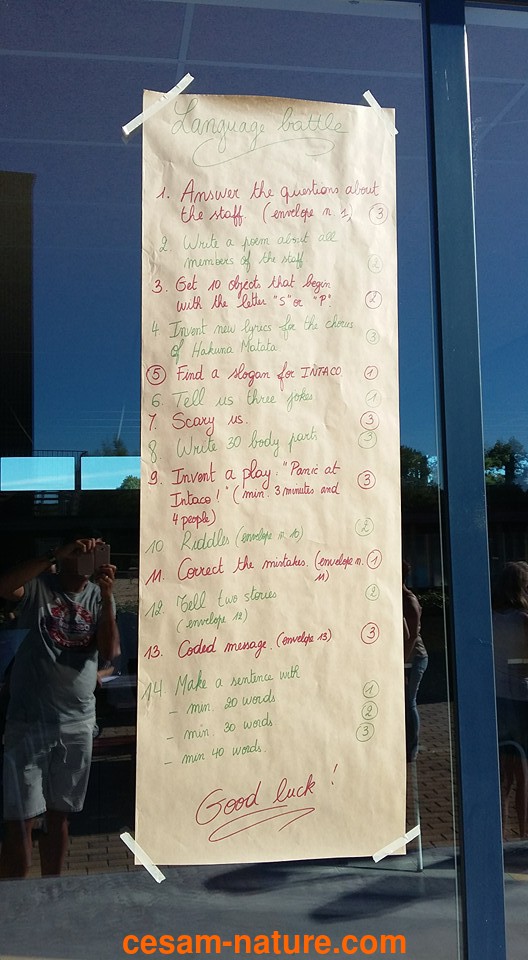 Language battle
1. Answer the questions about
the staff. (envelope n. 1) 3
2. Write a poem about all
members of the staff 2
3. Get 10 objects that begin
with the letter "S" or "P". 2
4. Invent new lyrics for the chorus
of Hakuna Matata. 3
5 Find a slogan for INTACO 1
6. Tell us three jokes 1
7. Scary us. 3
8. Write 30 body parts 3
9. Invent a play: "Panic at
Intaco!" (min. 3 minutes and
4 people) 3
10. Riddles (envelope n. 10) 2
11. Correct the mistakes. (envelope n.
11) 1
12. Tell two stories 2
(envelope 12)
13. Coded message. (envelope 13) 3
14 Make a sentence with
- min. 20 words 1
- min. 30 words 2
- min 40 words. 3
Good luck !
cesam-nature.com